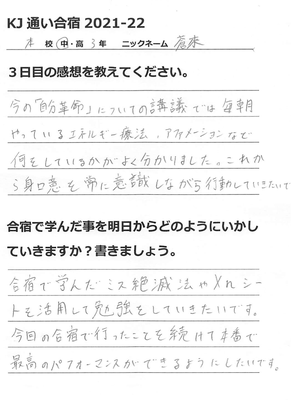 KJ 通い合宿 2021-22
本 校 中・高 3 年 ニックネーム
3日目の感想を教えてください。
今の「自分革命」についての講義では毎朝
やっているエネルギー療法、アファメーションなどで
何をしているかがよく分かりました。これか
ら身口意を常に意識しながら行動していきたいです
合宿で学んだ事を明日からどのようにいかし
ていきますか？書きましょう。
合宿で学んだミス絶滅法やXnシー
トを活用して勉強をしていきたいです。
今回の合宿で行ったことを続けて本番で
最高のパフォーマンスができるようにしたいです。